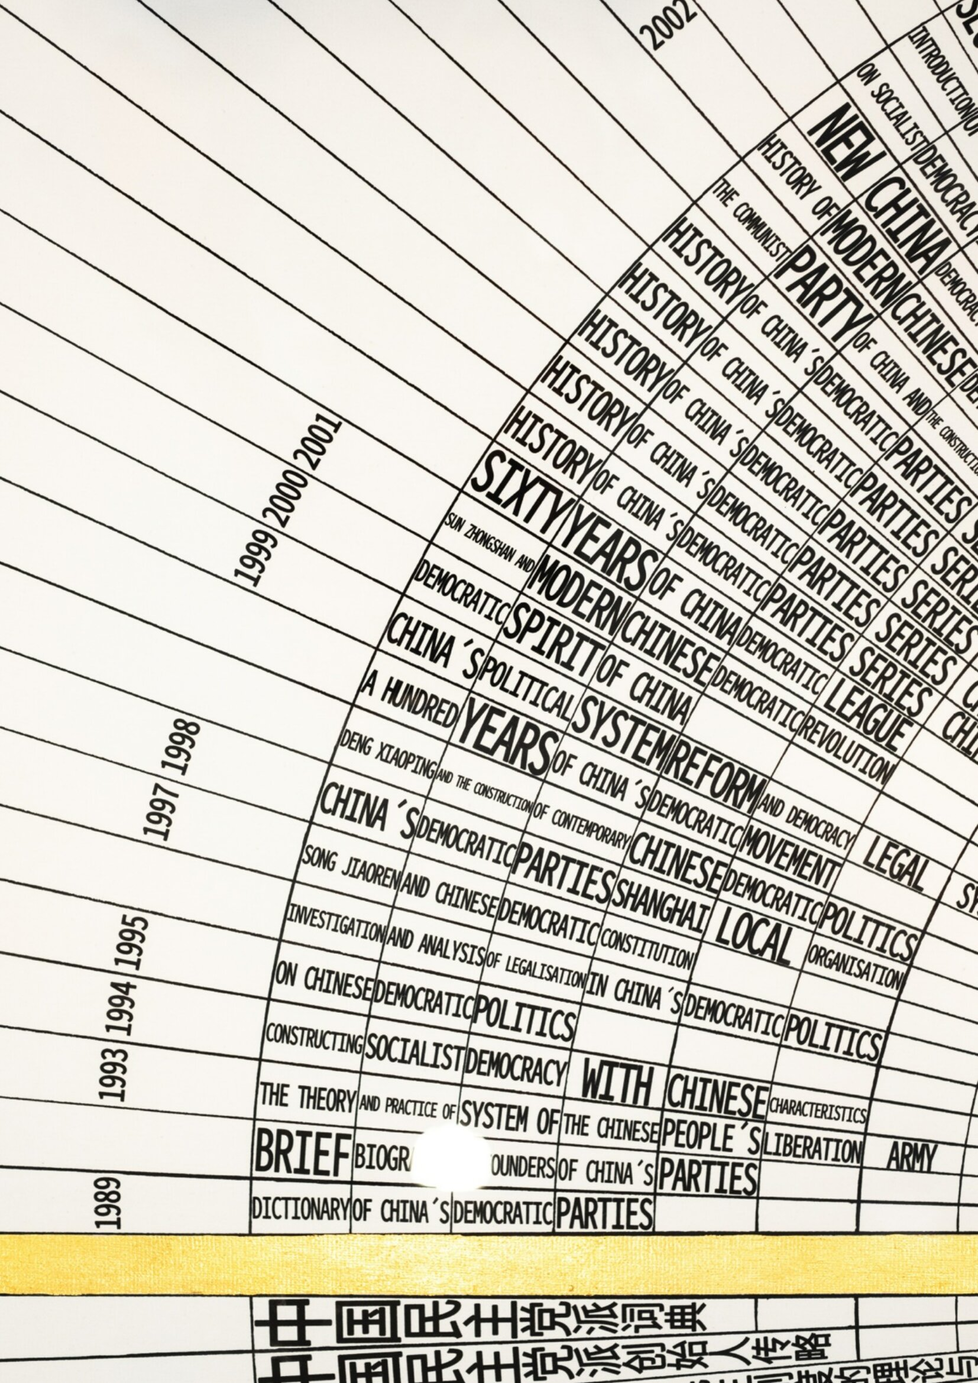 2002
INTRODUCTION
ON SOCIALIST DEMOCRACY
NEW CHINA DEMOCRAC
HISTORY OF MODERN CHINESE
THE COMMUNIST PARTY OF CHINA AND THE
HISTORY OF CHINA'S DEMOCRATIC PARTIES
HISTORY OF CHINA'S DEMOCRATIC PARTIES
HISTORY OF CHINA'S DEMOCRATIC PARTIES SERIES
HISTORY OF CHINA'S DEMOCRATIC PARTIES SERIES
HISTORY OF CHINA'S DEMOCRATIC PARTIES SERIES
SIXTY YEARS OF CHINA DEMOCRATIC LEAGUE
2001
SUN ZHONGSHAN AND MODERN CHINESE DEMOCRATIC REVOLUTION
2000
DEMOCRATIC SPIRIT OF CHINA
1999
CHINA'S POLITICAL SYSTEM REFORM AND DEMOCRACY LEGAL
A HUNDRED YEARS OF CHINA'S DEMOCRATIC MOVEMENT
1998
DENG XIAOPING AND THE CONSTRUCTION OF CONTEMPORARY CHINESE DEMOCRATIC POLITICS
1997
CHINA'S DEMOCRATIC PARTIES SHANGHAI LOCAL ORGANISATION
SONG JIAOREN AND CHINESE DEMOCRATIC CONSTITUTION
1995
INVESTIGATION AND ANALYSIS OF LEGALISATION IN CHINA'S DEMOCRATIC POLITICS
1994
ON CHINESE DEMOCRATIC POLITICS
1993
CONSTRUCTING SOCIALIST DEMOCRACY WITH CHINESE CHARACTERISTICS
THE THEORY AND PRACTICE OF SYSTEM OF THE CHINESE PEOPLE'S LIBERATION ARMY
BRIEF BIOGR OUNDERS OF CHINA'S PARTIES
1989
DICTIONARY OF CHINA'S DEMOCRATIC PARTIES
中国民主党派词典
中国民主党派创始人传略
的理论与